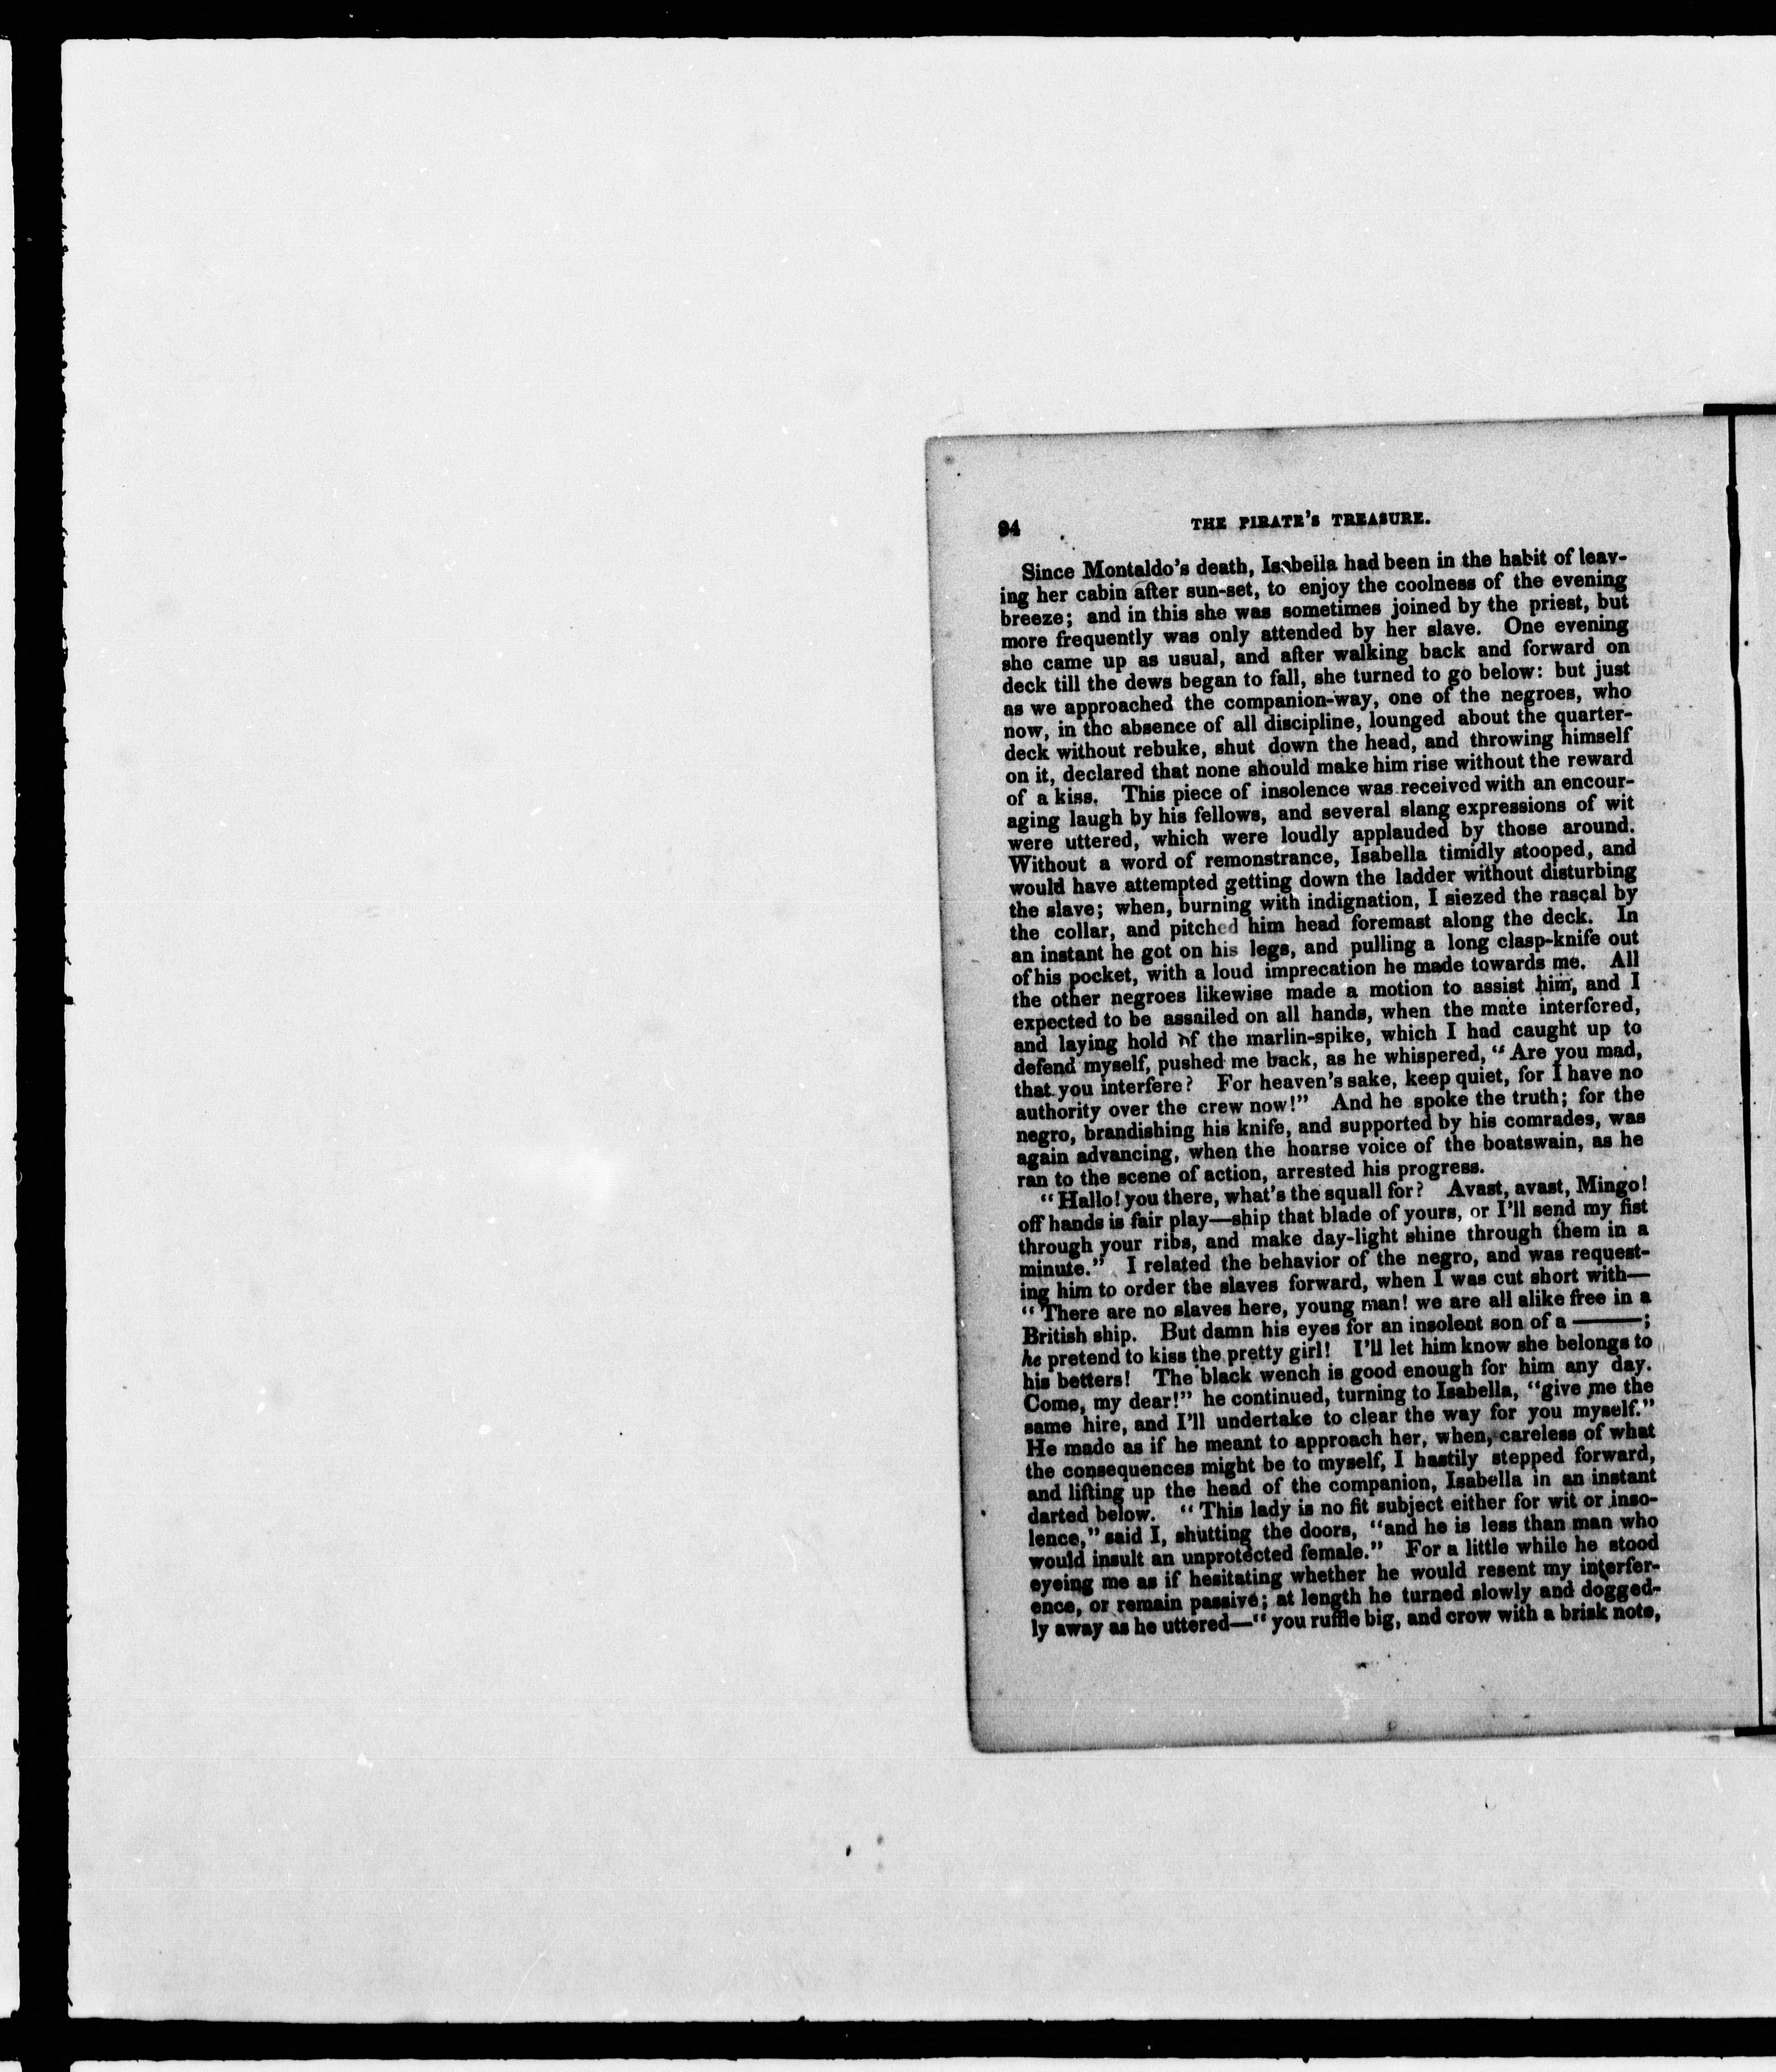 94 THE PIRATE'S TREASURE.
Since Montaldo's death, Isabella had been in the habit of leav-
ing her cabin after sun-set, to enjoy the coolness of the evening
breeze; and in this she was sometimes joined by the priest, but
more frequently was only attended by her slave. One evening
she came up as usual, and after walking back and forward on
deck till the dews began to fall, she turned to go below: but just
as we approached the companion-way, one of the negroes, who
now, in the absence of all discipline, lounged about the quarter-
deck without rebuke, shut down the head, and throwing himself
on it, declared that none should make him rise without the reward
of a kiss. This piece of insolence was received with an encour-
aging laugh by his fellows, and several slang expressions of wit
were uttered, which were loudly applauded by those around.
Without a word of remonstrance, Isabella timidly stooped, and
would have attempted getting down the ladder without disturbing
the slave; when, burning with indignation, I siezed the rascal by
the collar, and pitched him head foremast along the deck. In
an instant he got on his legs, and pulling a long clasp-knife out
of his pocket, with a loud imprecation he made towards me. All
the other negroes likewise made a motion to assist him, and I
expected to be assailed on all hands, when the mate interfered,
and laying hold of the marlin-spike, which I had caught up to
defend myself, pushed me back, as he whispered, "Are you mad,
that you interfere? For heaven's sake, keep quiet, for I have no
authority over the crew now!" And he spoke the truth; for the
negro, brandishing his knife, and supported by his comrades, was
again advancing, when the hoarse voice of the boatswain, as he
ran to the scene of action, arrested his progress.
"Hallo! you there, what's the squall for? Avast, avast, Mingo!
off hands is fair play—ship that blade of yours, or I'll send my fist
through your ribs, and make day-light shine through them in a
minute." I related the behavior of the negro, and was request-
ing him to order the slaves forward, when I was cut short with—
"There are no slaves here, young man! we are all alike free in a
British ship. But damn his eyes for an insolent son of a ———;
he pretend to kiss the pretty girl! I'll let him know she belongs to
his betters! The black wench is good enough for him any day.
Come, my dear!" he continued, turning to Isabella, "give me the
same hire, and I'll undertake to clear the way for you myself."
He made as if he meant to approach her, when, careless of what
the consequences might be to myself, I hastily stepped forward,
and lifting up the head of the companion, Isabella in an instant
darted below. "This lady is no fit subject either for wit or inso-
lence," said I, shutting the doors, "and he is less than man who
would insult an unprotected female." For a little while he stood
eyeing me as if hesitating whether he would resent my interfer-
ence, or remain passive; at length he turned slowly and dogged-
ly away as he uttered—"you ruffle big, and crow with a brisk note,